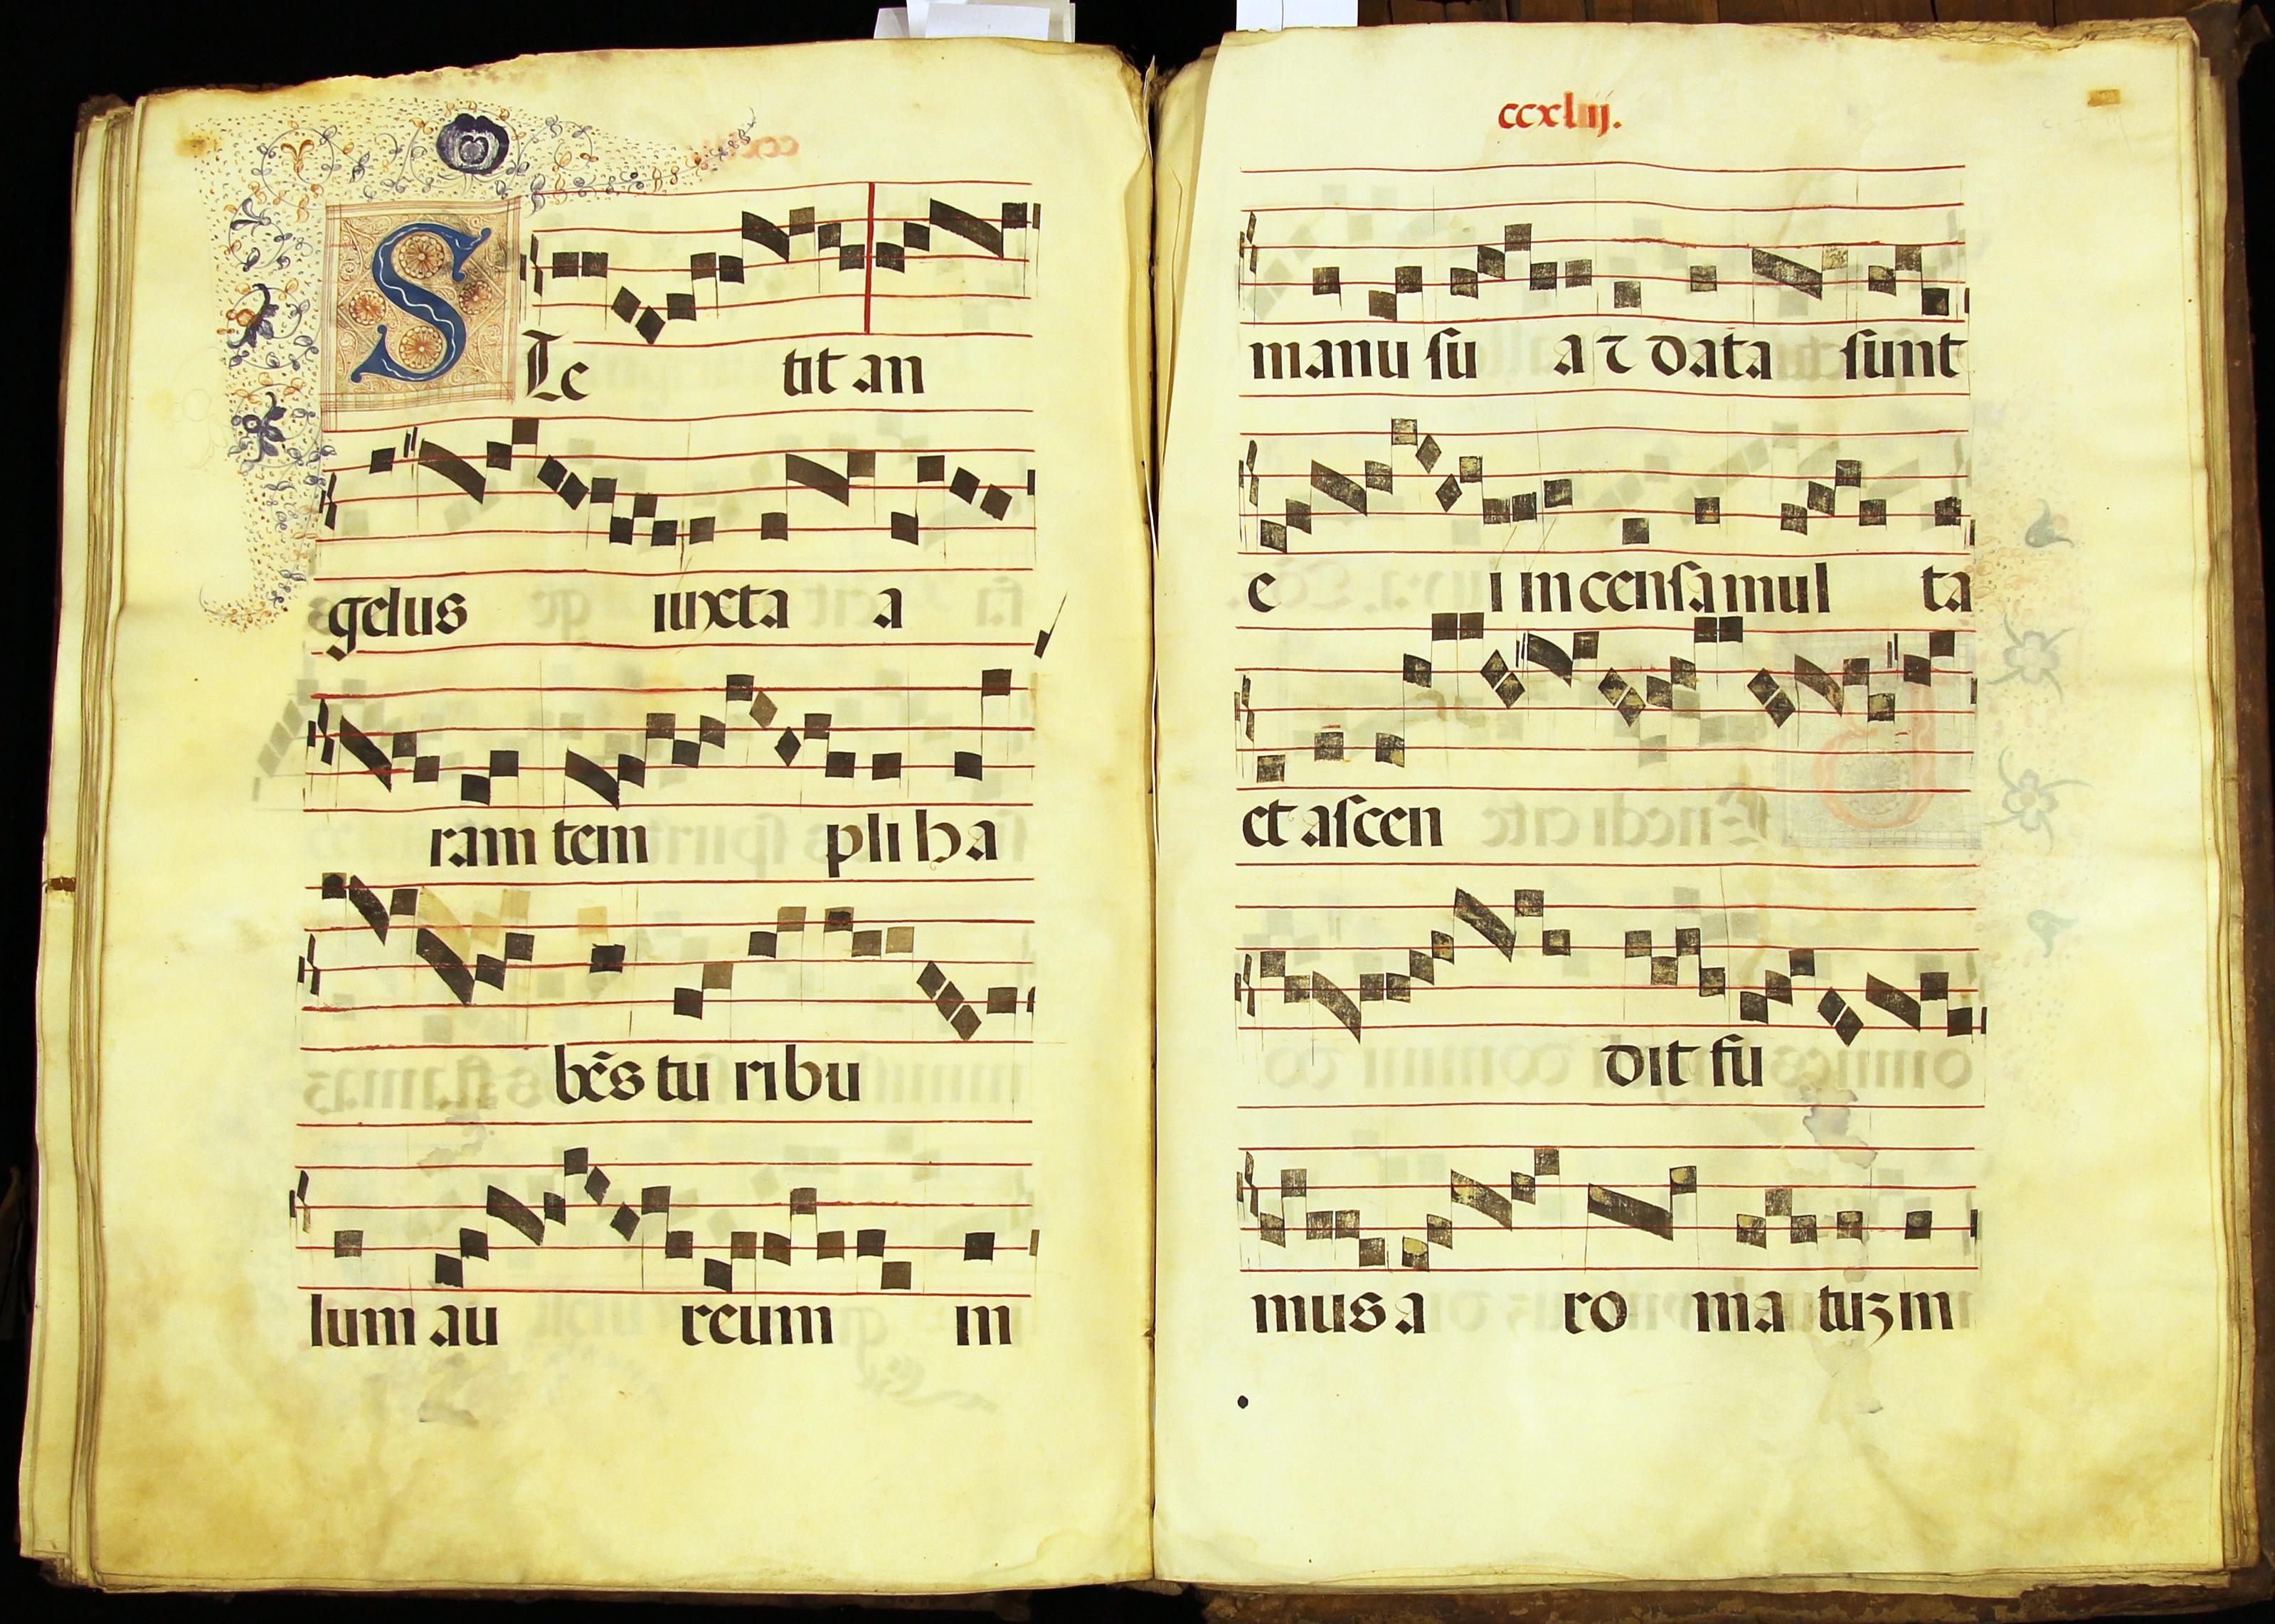 STe tit an
gelus iuxta a
ram tem pli ha
bẽs tu ribu
lum au reum in
ccxliij.
manu su a ⁊ data sunt
e i in censa mul ta
et ascen
dit fu
mus a ro ma tuʒ in